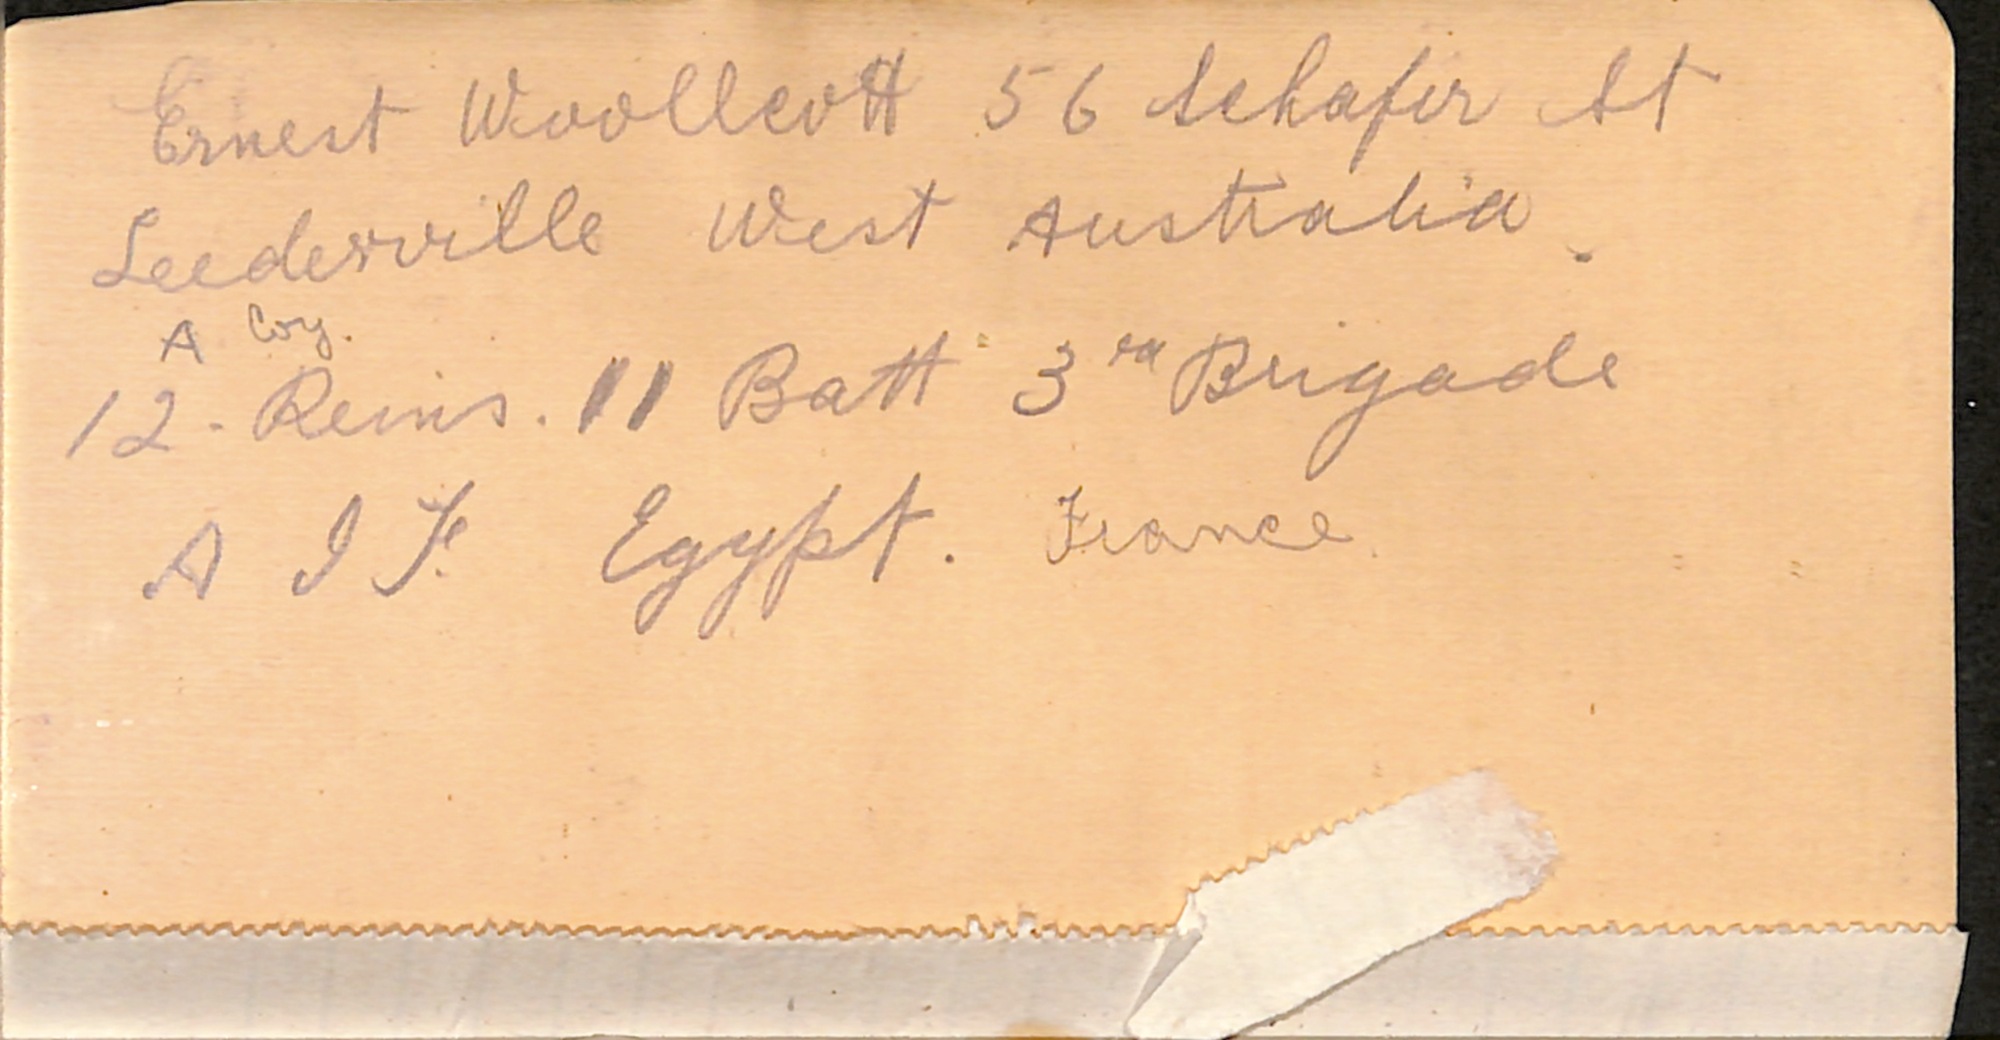 Ernest Woollcott 56 Schafer St
Leederville West Australia.
A Coy.
12. Reins. 11 Batt 3rd Brigade
A I F. Egypt. France